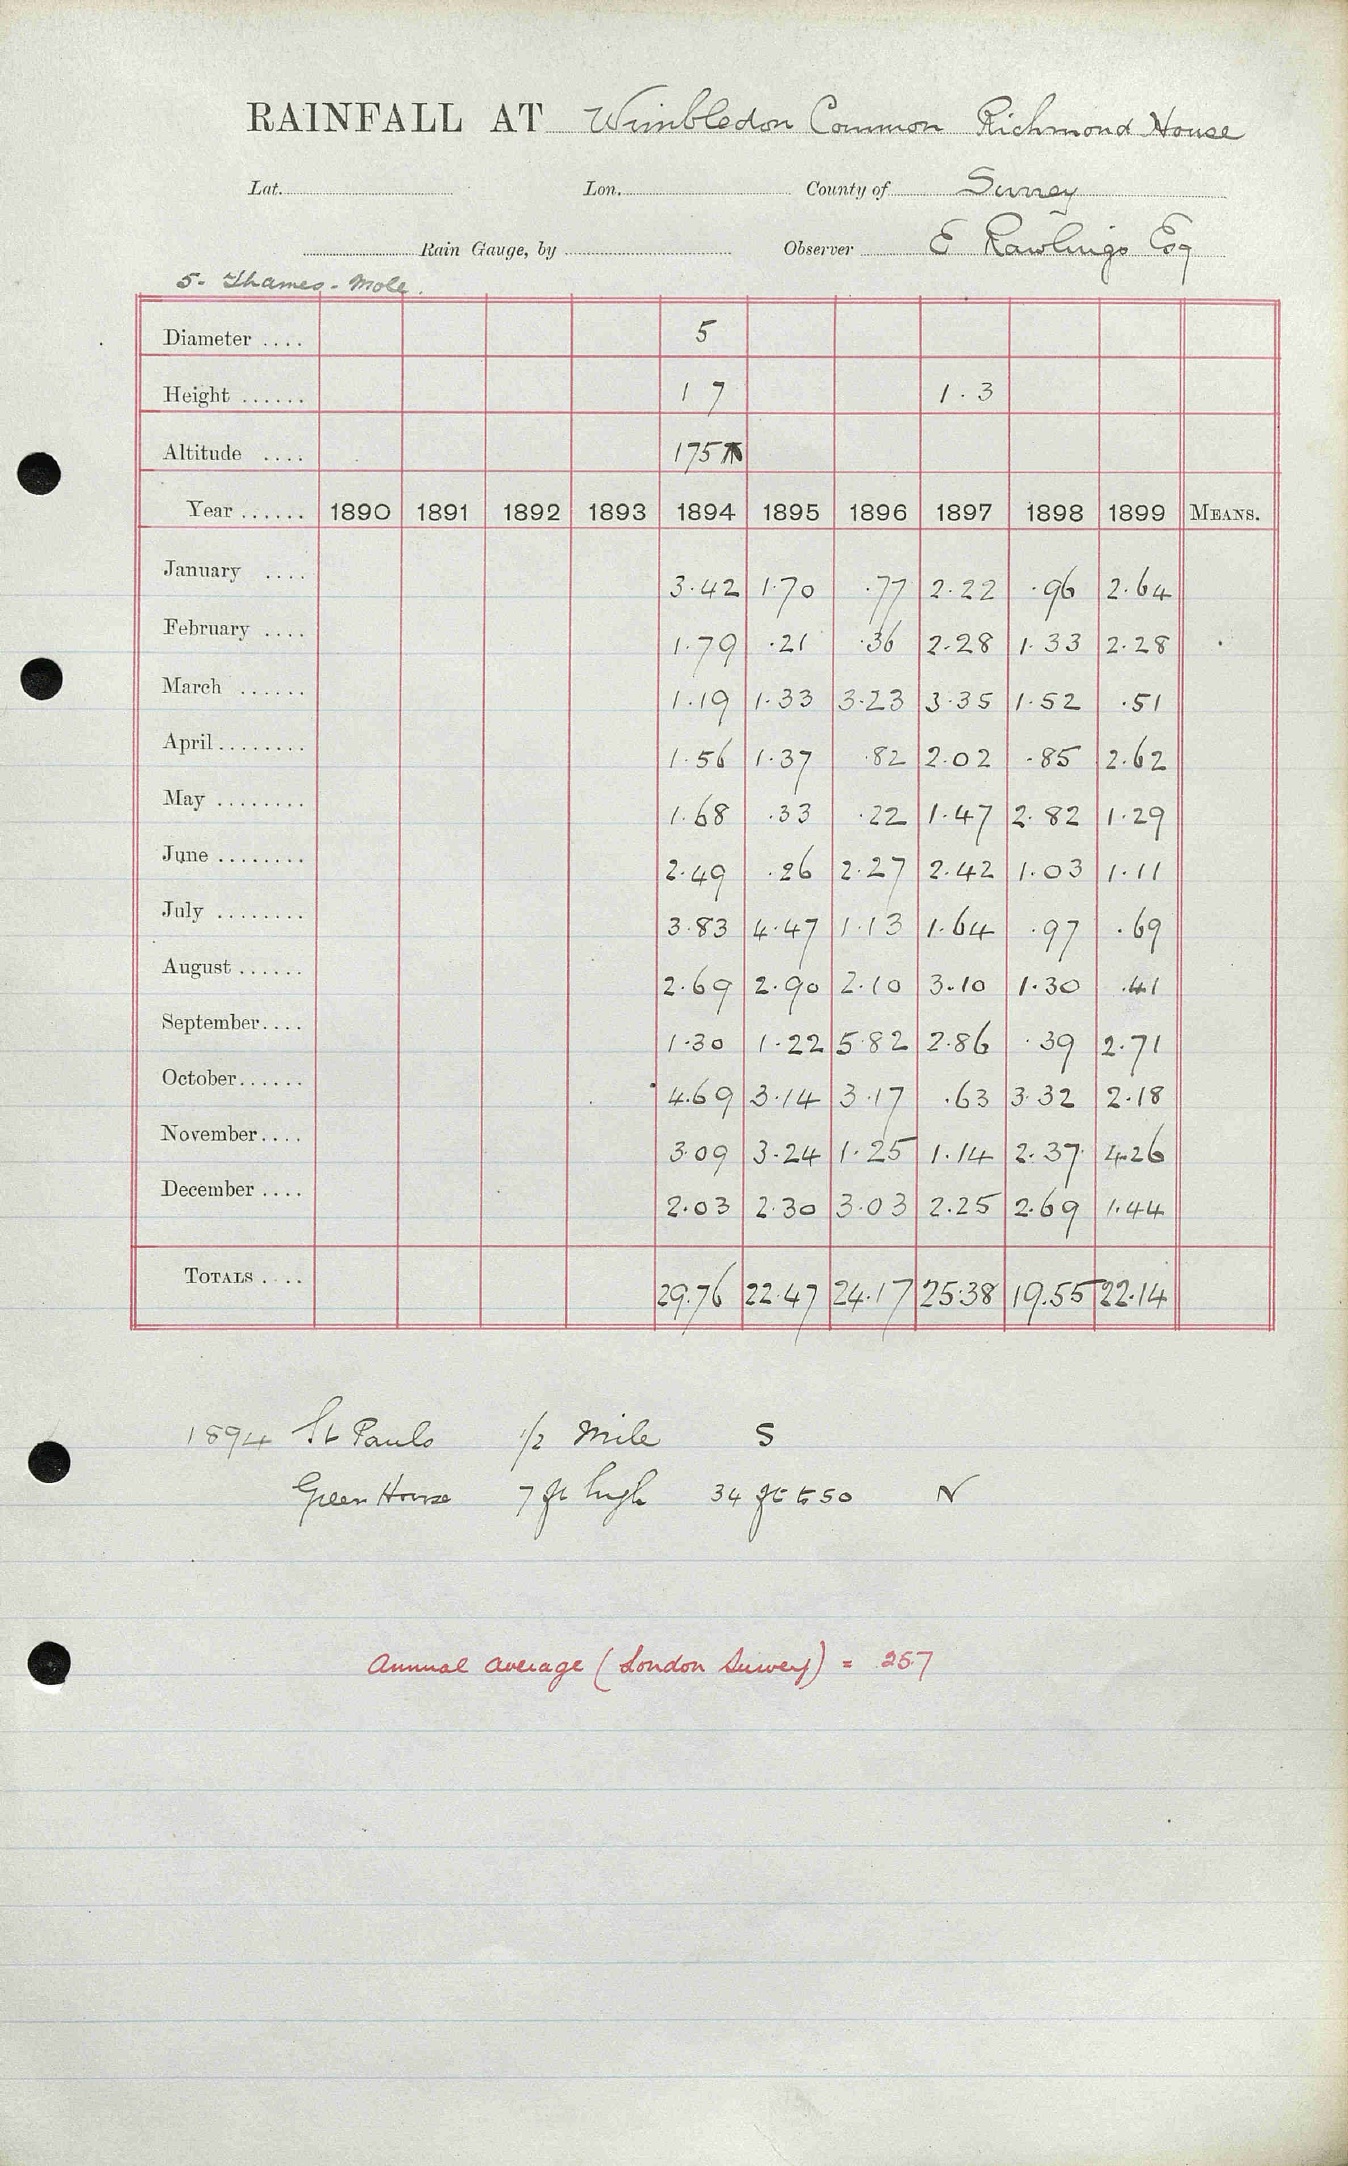 RAINFALL AT Wimbledon Common Richmond House
Lat. Lon. County of Surrey
Rain Gauge, by Observer E Rawlings Esq
5. Thames - Mole.
Diameter .... 5
Height ...... 1 7 1.3
Altitude .... 175
Year ...... 1890 1891 1892 1893 1894 1895 1896 1897 1898 1899 MEANS.
January .... 3.42 1.70 .77 2.22 .96 2.64
February .... 1.79 .21 .36 2.28 1.33 2.28
March ...... 1.19 1.33 3.23 3.35 1.52 .51
April ........ 1.56 1.37 .82 2.02 .85 2.62
May ........ 1.68 .33 .22 1.47 2.82 1.29
June ........ 2.49 .26 2.27 2.42 1.03 1.11
July ........ 3.83 4.47 1.13 1.64 .97 .69
August ...... 2.69 2.90 2.10 3.10 1.30 .41
September.... 1.30 1.22 5.82 2.86 .39 2.71
October...... 4.69 3.14 3.17 .63 3.32 2.18
November.... 3.09 3.24 1.25 1.14 2.37 4.26
December .... 2.03 2.30 3.03 2.25 2.69 1.44
TOTALS .... 29.76 22.47 24.17 25.38 19.55 22.14
1894 St Pauls 1/2 Mile S
Green House 7 ft high 34 ft to 50 N
Annual average (London Survey) = 25.7